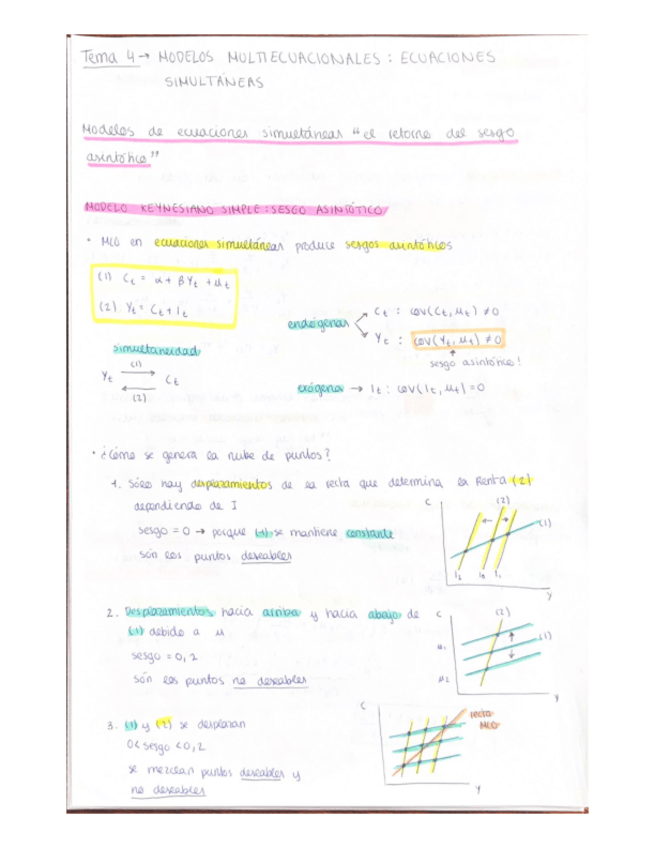 Tema 4 → MODELOS MULTIECUACIONALES: ECUACIONES
SIMULTÁNEAS
Modelos de ecuaciones simultáneas "el retorno del sesgo
asintótico"
MODELO KEYNESIANO SIMPLE: SESGO ASINTÓTICO
· MCO en ecuaciones simultáneas produce sesgos asintóticos
(1) Ct = α + βYt + μt
(2) Yt = Ct + It
endógenas
Ct : cov(Ct, μt) ≠ 0
Yt : cov(Yt, μt) ≠ 0
sesgo asintótico!
simultaneidad
Yt (1) → Ct
← (2)
exógena → It : cov(It, μt) = 0
· ¿Cómo se genera la nube de puntos?
1. Sólo hay desplazamientos de la recta que determina la Renta (2)
dependiendo de I
sesgo = 0 → porque (1) se mantiene constante
són los puntos deseables
C (2) (1)
I2 I0 I1
Y
2. Desplazamientos hacia arriba y hacia abajo de
(1) debido a μ
sesgo = 0,2
són los puntos no deseables
C (2) (1)
μ1
μ2
Y
3. (1) y (2) se desplazan
0 < sesgo < 0,2
se mezclan puntos deseables y
no deseables
C
recta
MCO
Y